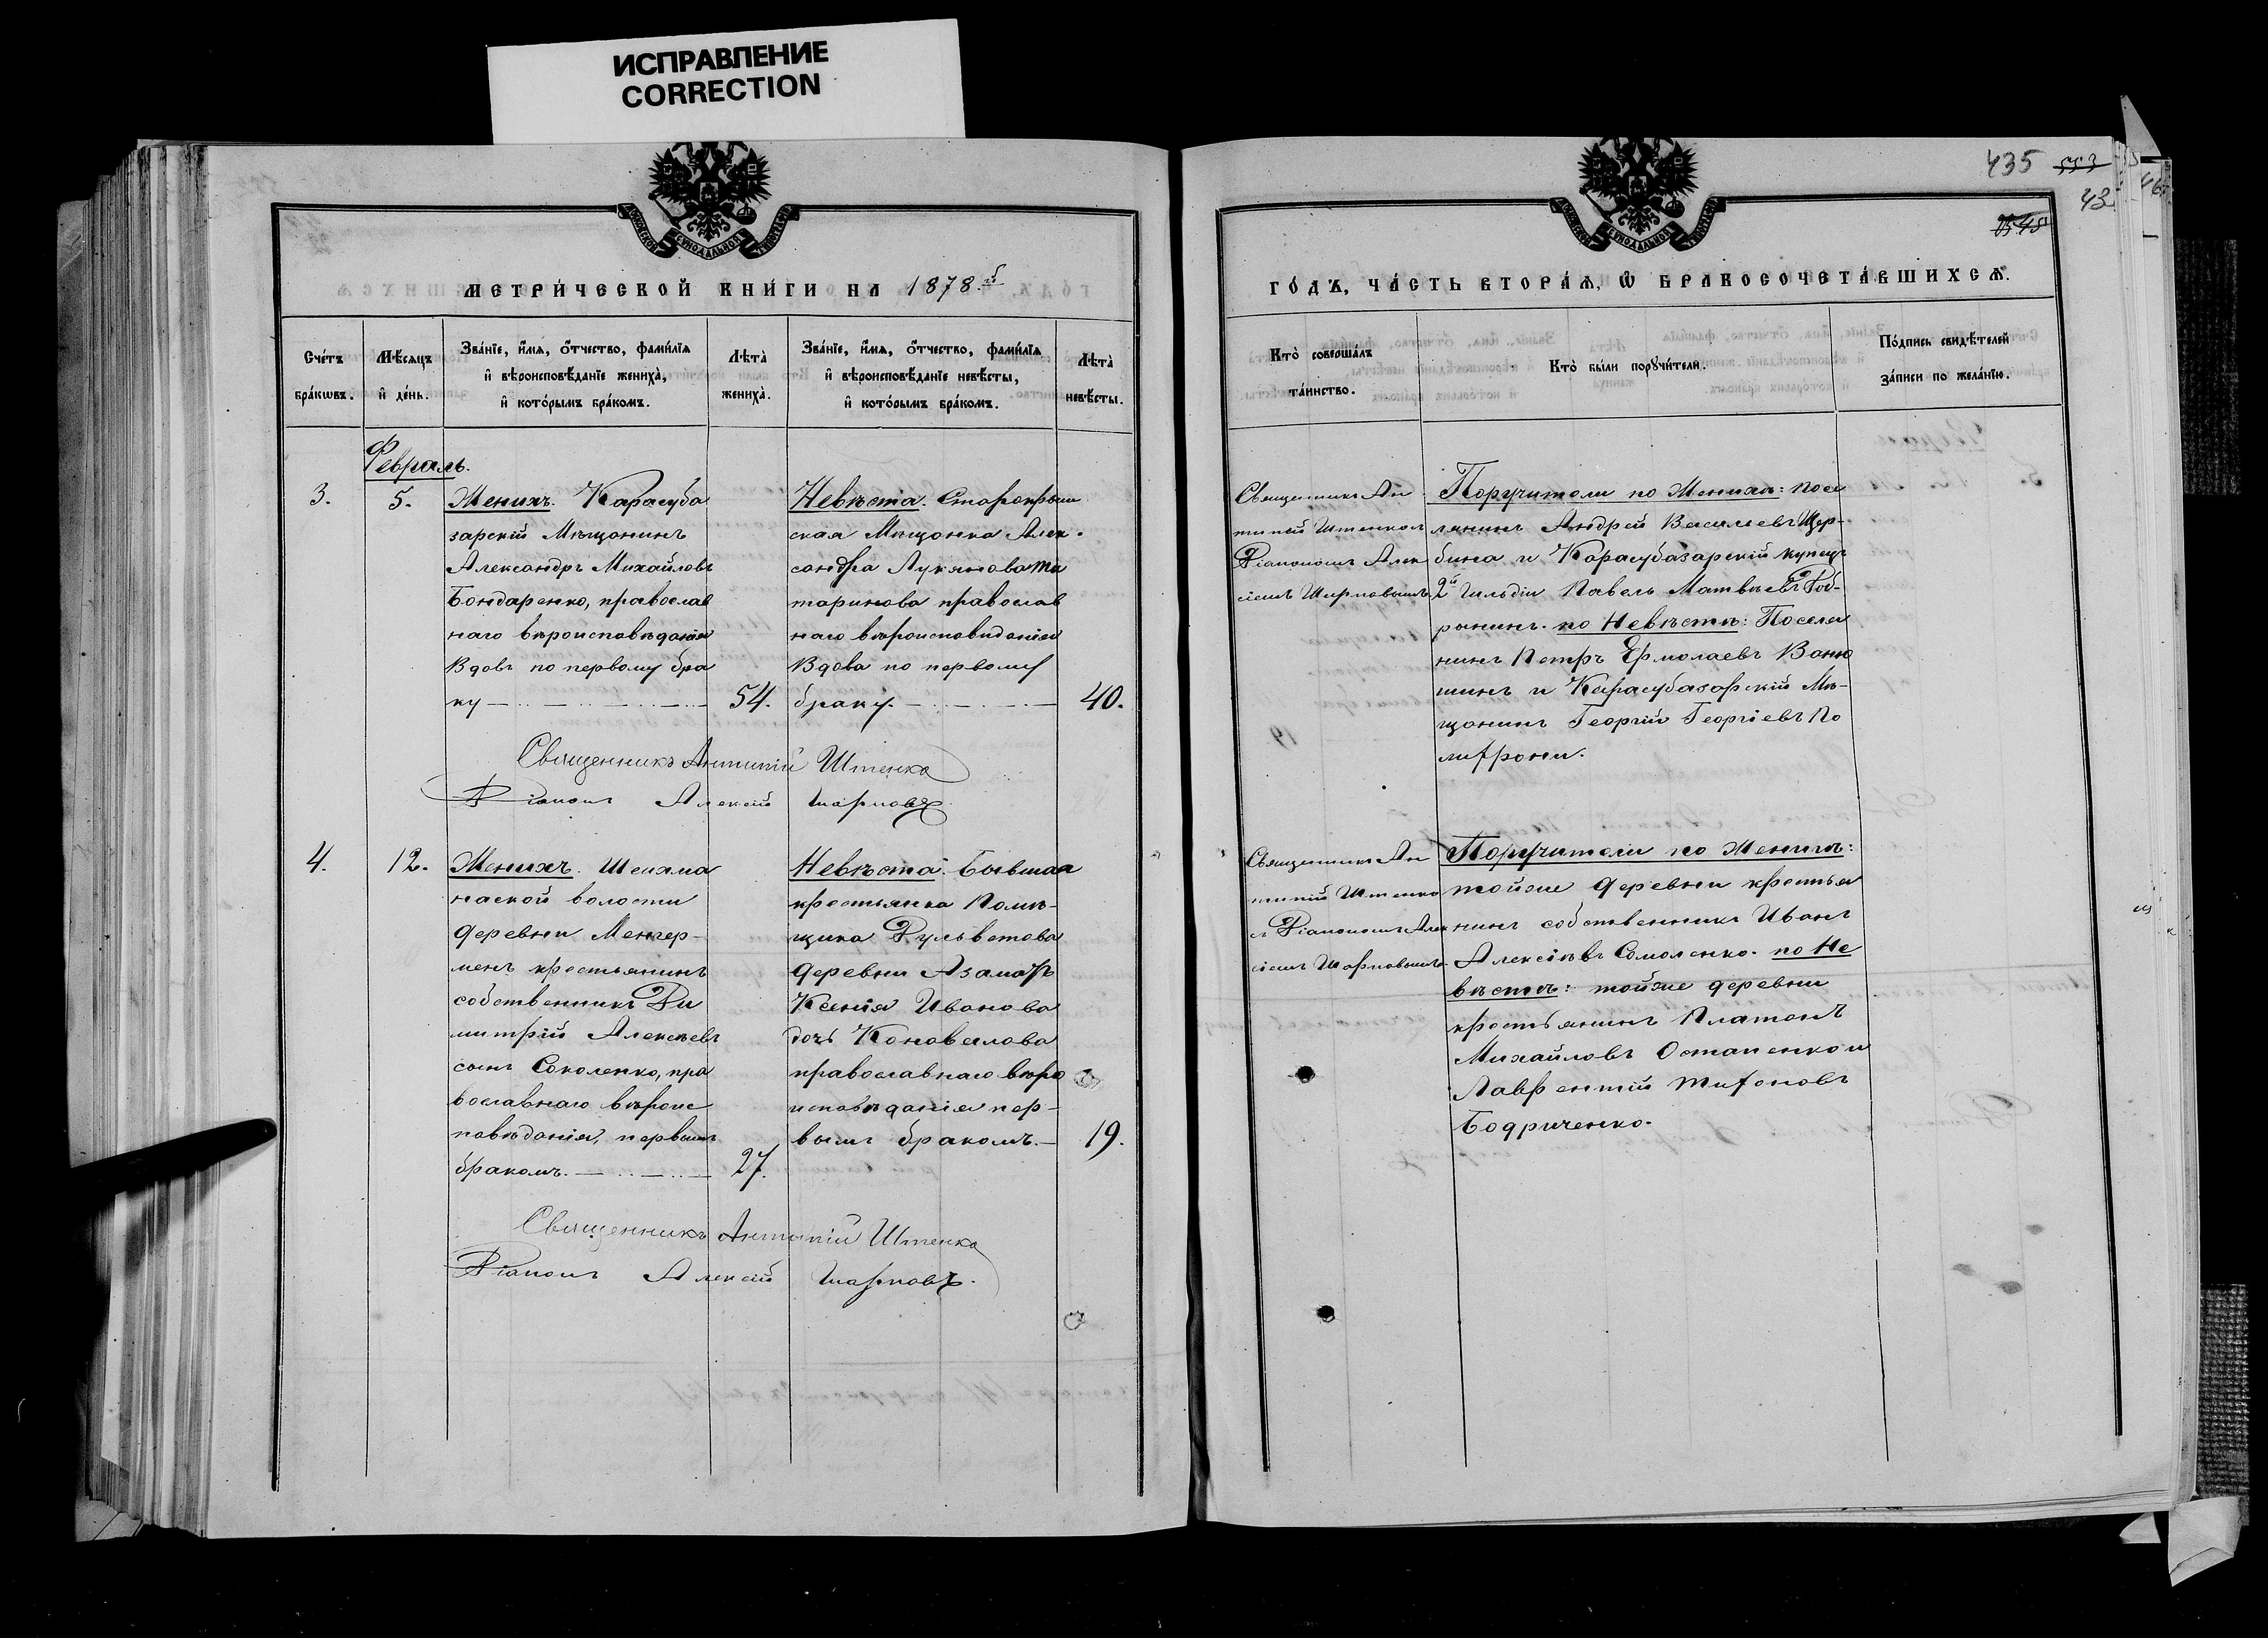 ИСПРАВЛЕНИЕ
CORRECTION
435 553
43
МЕТРИ́ЧЕСКОЙ КНИ́ГИ НА 1878й
ГО́ДЪ, ЧА́СТЬ ВТОРА́Ѧ, Ѽ БРАКОСОЧЕТА́ВШИХСѦ.
Сче́тъ бра́кѡвъ.
Мѣ́сяцъ и҆ де́нь.
Зва́нїе, и҆́мя, ѻ҆́тчество, фами́лїя и҆ вѣроисповѣ́данїе жениха̀, и҆ кото́рымъ бра́комъ.
Лѣта̀ жениха̀.
Зва́нїе, и҆́мя, ѻ҆́тчество, фами́лїя и҆ вѣроисповѣ́данїе невѣ́сты, и҆ кото́рымъ бра́комъ.
Лѣта̀ невѣ́сты.
Кто̀ соверша́лъ та́инство.
Кто̀ бы́ли порꙋчи́тели.
По́дпись свидѣ́телей за́писи по жела́нїю.
Февраль.
3.
5.
Женихъ. Карасуба
зарскій Мѣщанинъ
Александръ Михайловъ
Бондаренко, православ
наго вѣроисповѣданія
Вдовъ по первому бра
ку
54.
Невѣста. Старокрым
ская Мѣщанка Алек-
сандра Лукянова Та
таринова православ
наго вѣроисповиданія
Вдова по первому
браку.
40.
Священникъ Антипій Штенко
Діаконъ Алексій Шарповъ
Священникъ Ан
типій Штенко
Діакономъ Алек
сіемъ Шарповымъ.
Поручители по Женихѣ: посе
лянинъ Андрей Васильевъ Щер-
бина и Карасубазарскій купецъ
2й Гильдіи Павелъ Матвѣевъ
по Невѣстѣ: Поселя
нинъ Петръ Ермолаевъ Ваню
шинъ и Карасубазарскій Мѣ-
щанинъ Георгій Георгіевъ По
лифрони.
4.
12.
Женихъ. Шейхма
наской волости
деревни Менгер-
менъ крестьянинъ
собственникъ Ди
митрій Алексѣевъ
сынъ Соколенко, пра
вославнаго вѣроис
повѣданія, первымъ
бракомъ.
27.
Невѣста. Бывшая
крестьянка Помѣ-
щика
деревни Азаматъ
Ксенія Иванова
дочь Коновалова
православнаго вѣро
исповѣданія пер-
вымъ бракомъ.
19.
Священникъ Антипій Штенко
Діаконъ Алексій Шарповъ.
Священникъ Ан
типій Штенко
съ Діакономъ Алек
сіемъ Шарповымъ.
Поручители по Женихѣ:
тойже деревни крестья
нинъ собственникъ Иванъ
Алексѣевъ Самоленко. по Не
вѣстѣ: тойже деревни
крестьянинъ Платонъ
Михайловъ Остапенко и
Лаврентій Тифоновъ
Бодриченко.